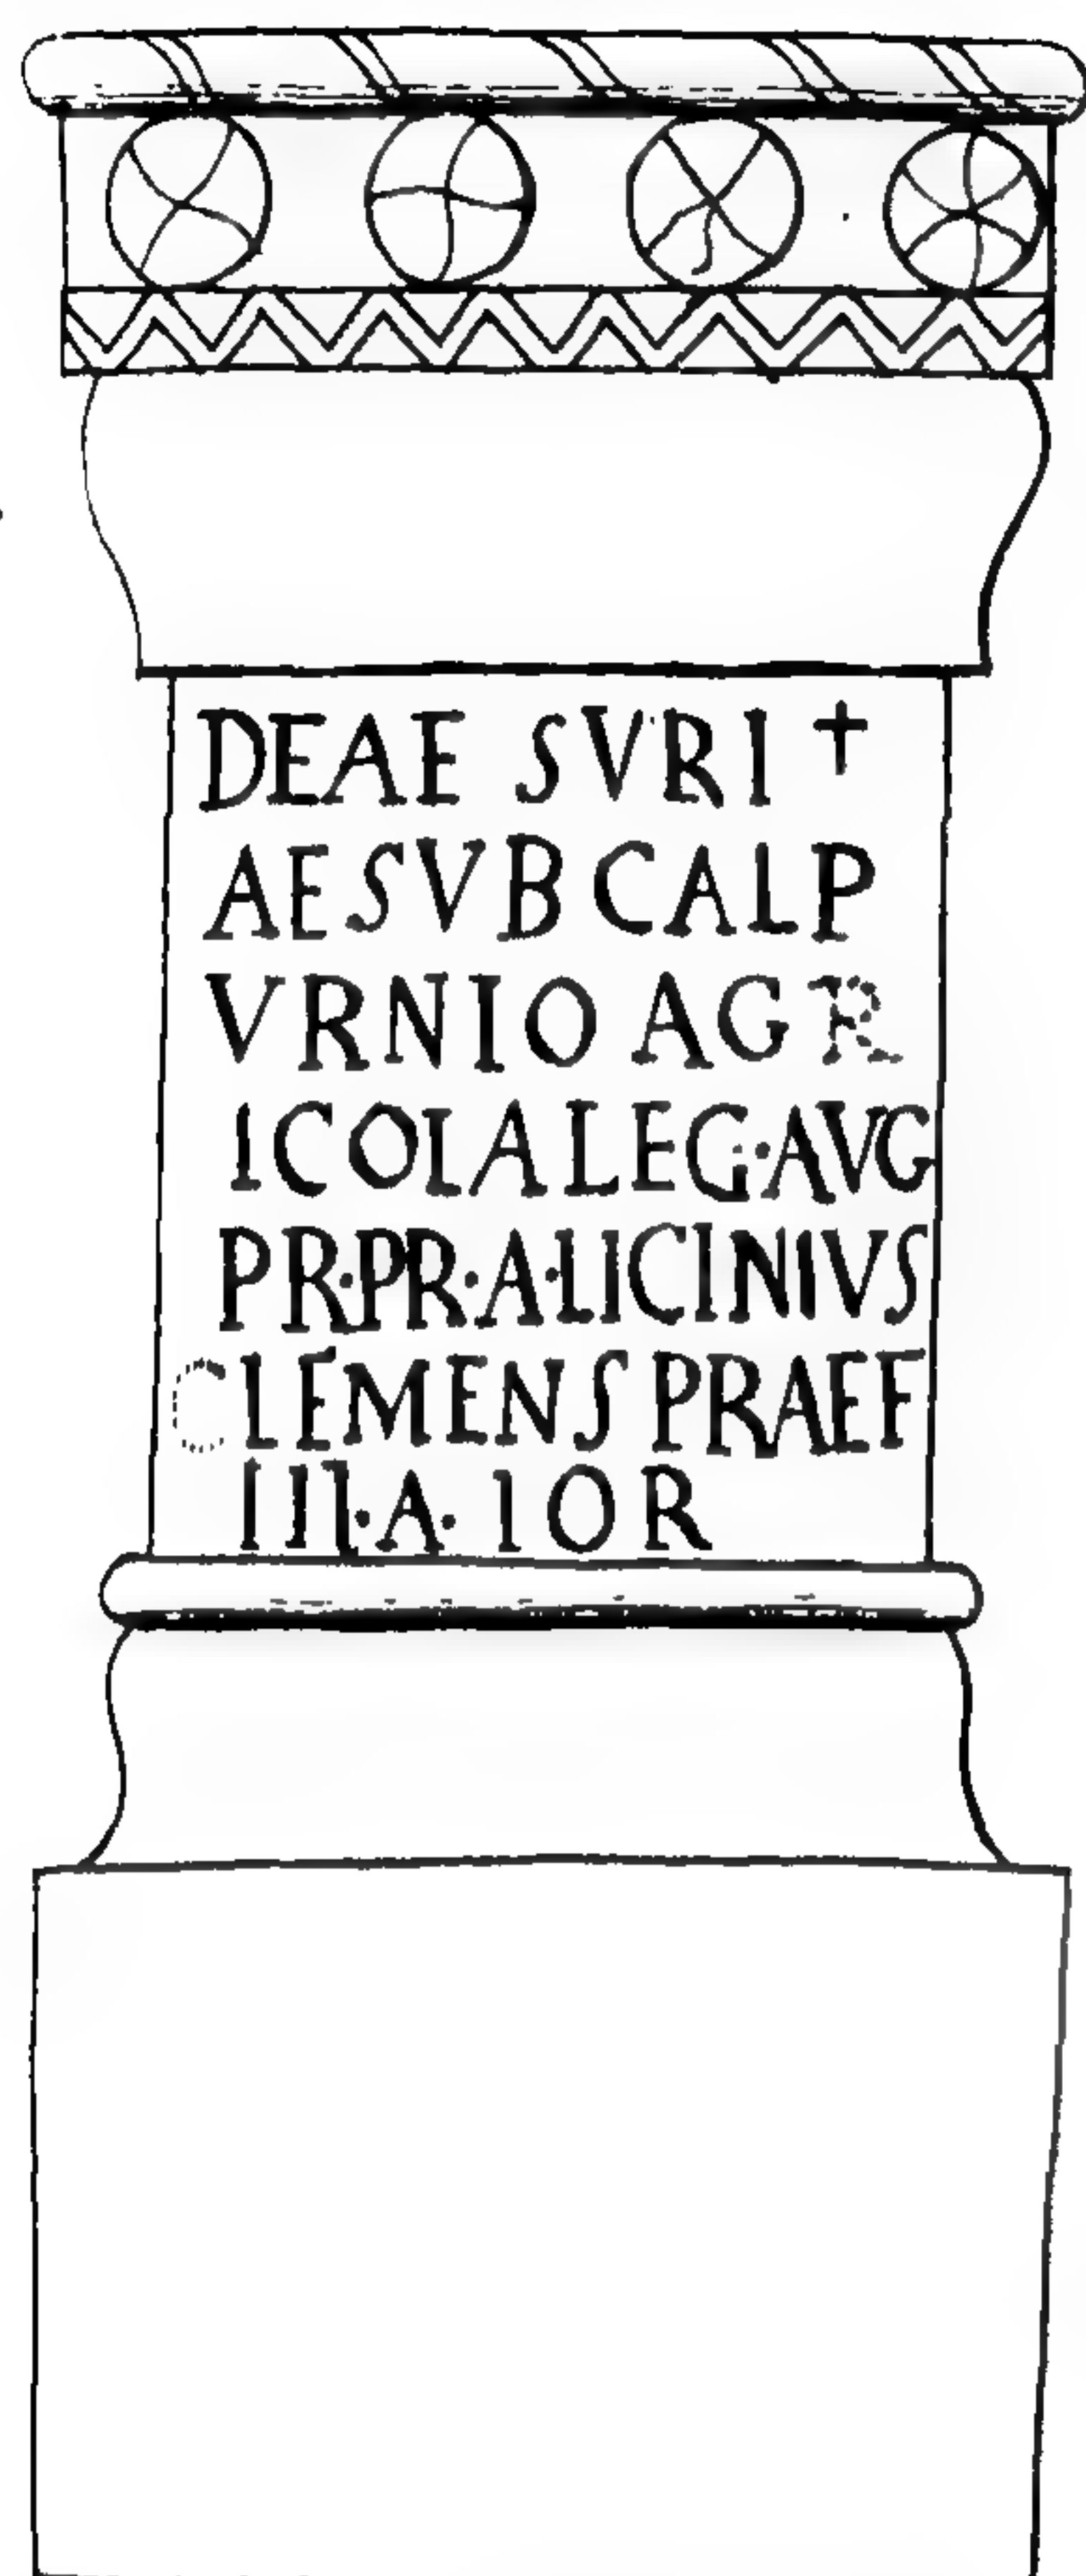 DEAE SVRI †
AE SVB CALP
VRNIO AGR
ICOLA LEG·AVG
PR·PR·A·LICINIVS
CLEMENS PRAEF
III·A·IOR